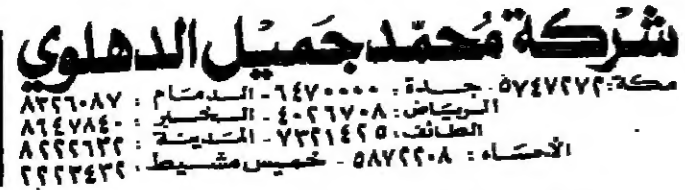 شركة محمد جميل الدهلوي
مكة: ٥٧٤٧٢٧٢ - جدة: ٦٤٧٠٠٠٠ - الدمام: ٨٣٢٦٠٨٧
الرياض: ٤٠٢٦٧٠٨ - الخبر: ٨٦٤٧٨٤٠
الطائف: ٧٣٢١٤٢٥ - المدينة: ٨٢٢٢٦٣٢
الأحساء: ٥٨٧٢٢٠٨ - خميس مشيط: ٢٢٢٣٤٣٢